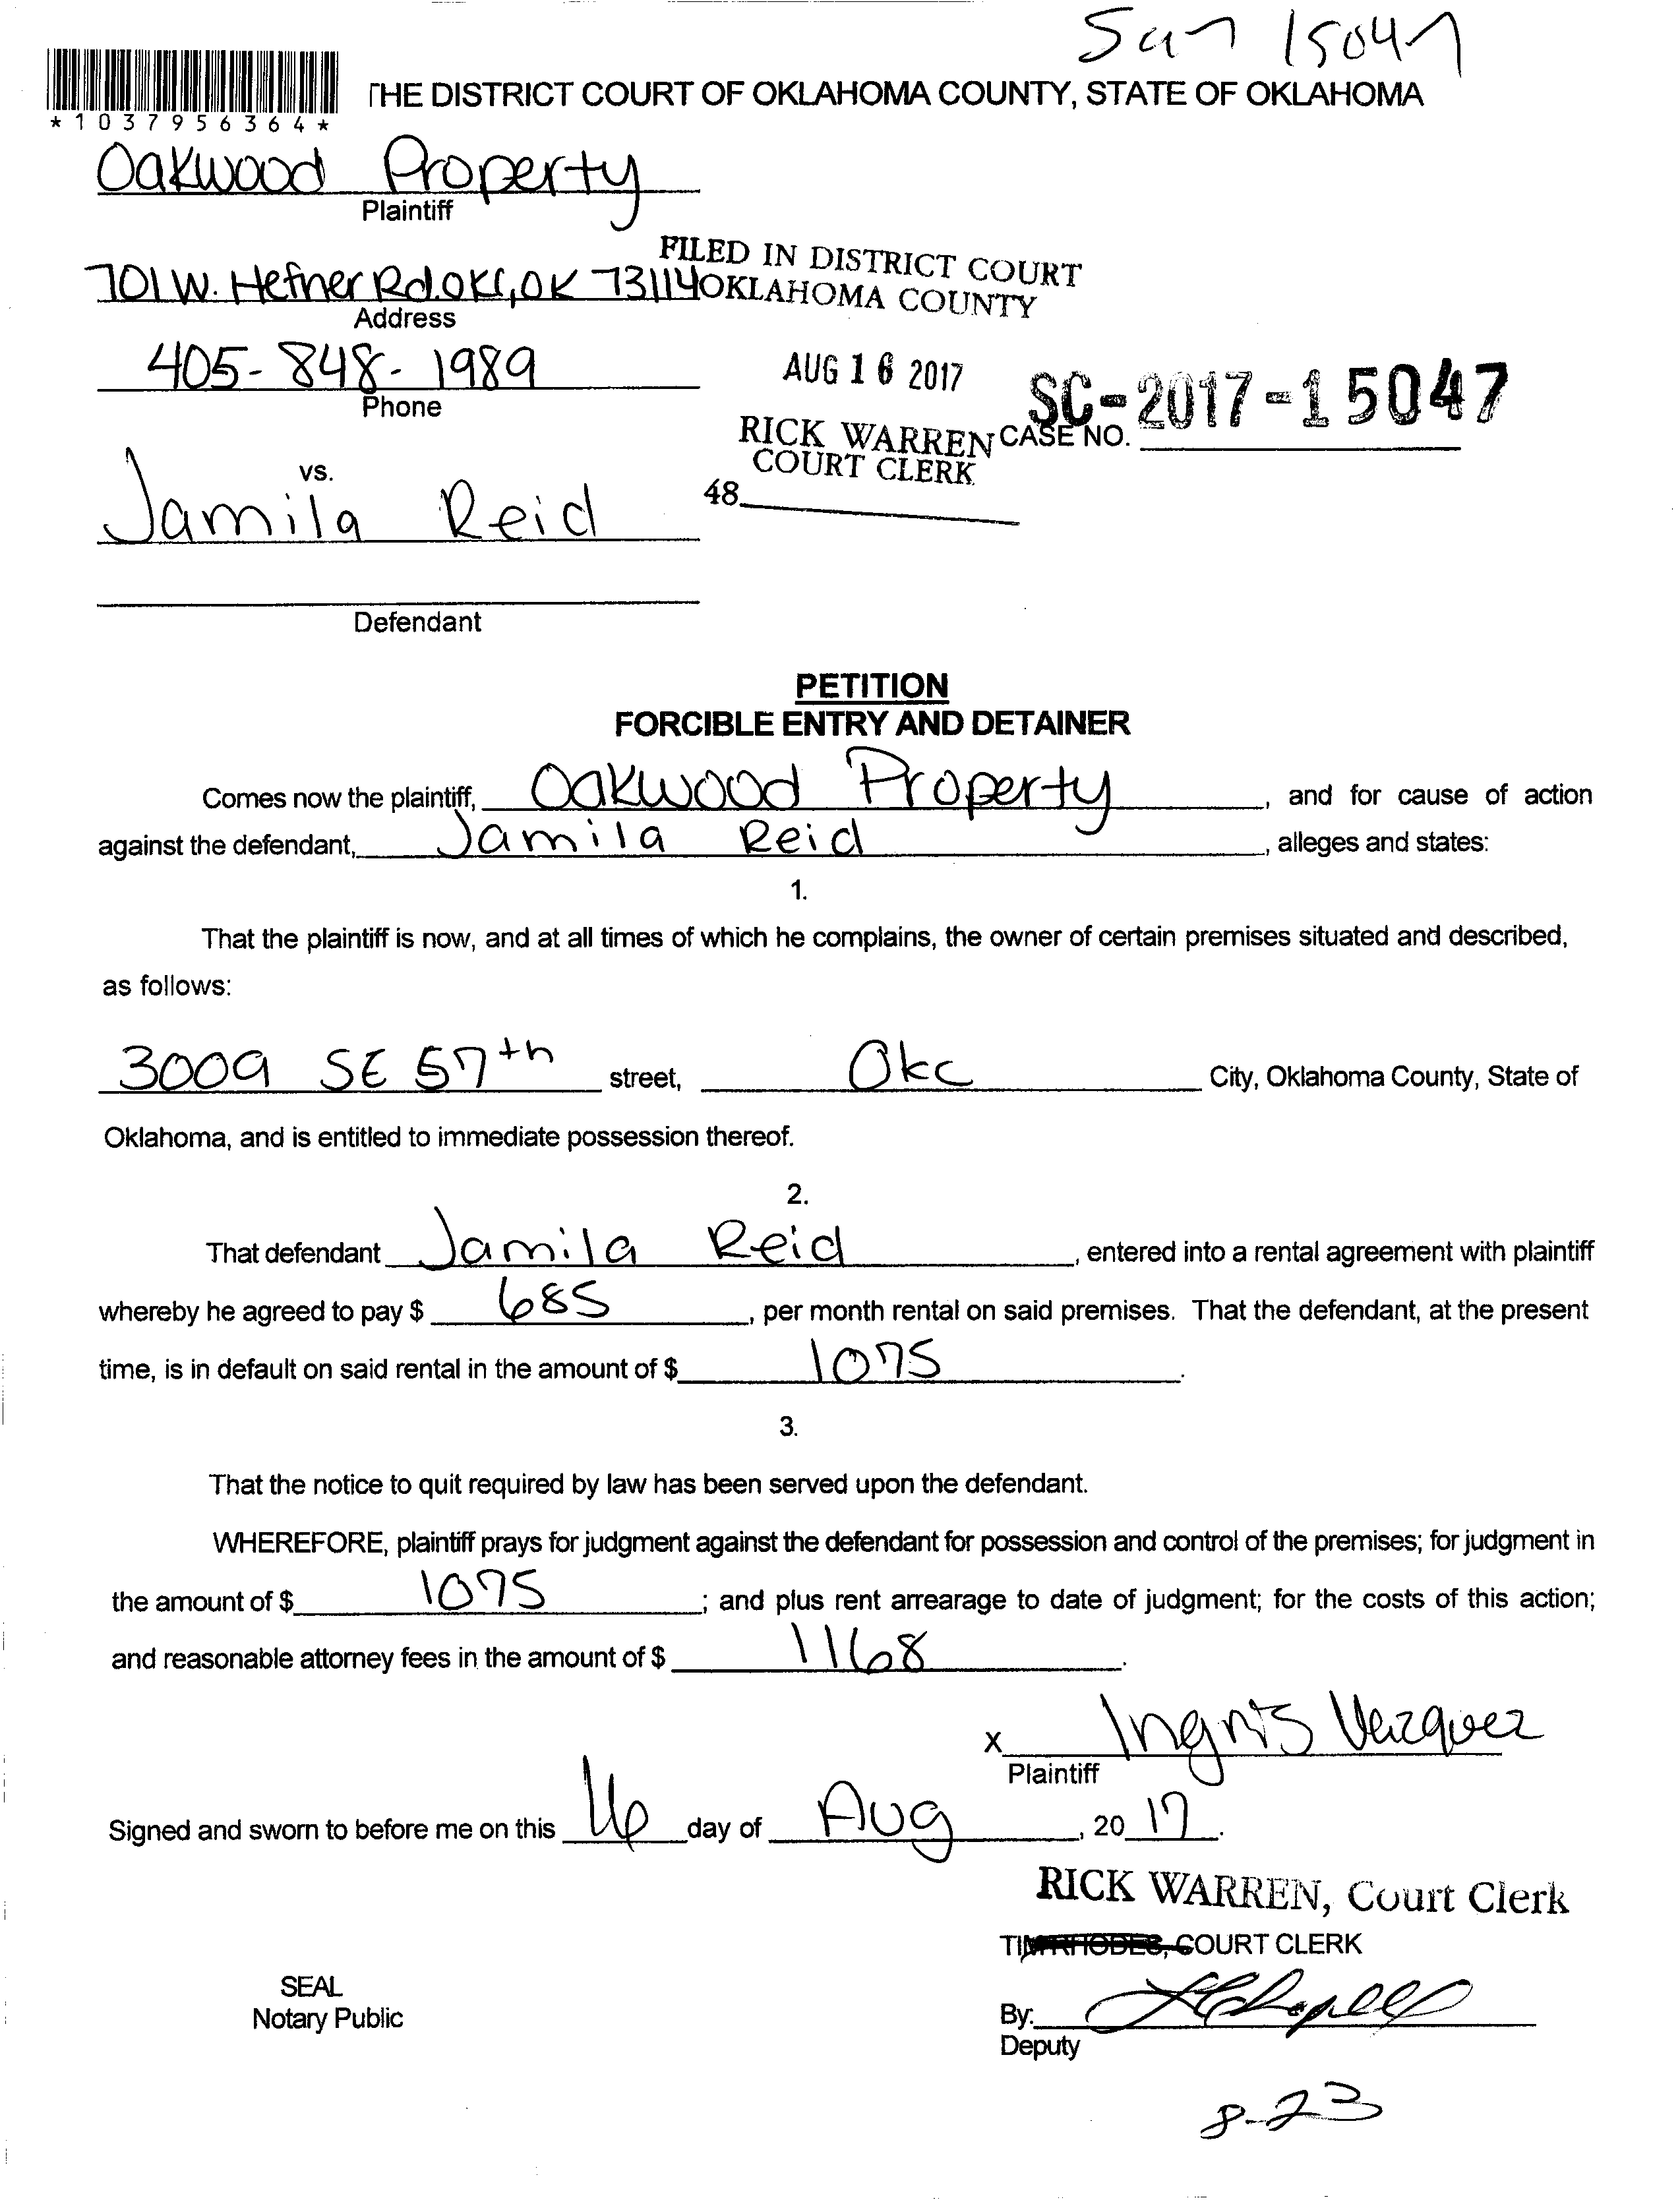 15047
*1037956364*
THE DISTRICT COURT OF OKLAHOMA COUNTY, STATE OF OKLAHOMA
Oakwood Property
Plaintiff
FILED IN DISTRICT COURT
OKLAHOMA COUNTY
701 W. Hefner Rd. OKC, OK 73114
Address
405-848-1989
Phone
AUG 16 2017
RICK WARREN
COURT CLERK
48
CASE NO. SC-2017-15047
vs.
Jamila Reid
Defendant
PETITION
FORCIBLE ENTRY AND DETAINER
Comes now the plaintiff, Oakwood Property, and for cause of action
against the defendant, Jamila Reid, alleges and states:
1.
That the plaintiff is now, and at all times of which he complains, the owner of certain premises situated and described,
as follows:
3009 SE 57th street, Okc City, Oklahoma County, State of
Oklahoma, and is entitled to immediate possession thereof.
2.
That defendant Jamila Reid, entered into a rental agreement with plaintiff
whereby he agreed to pay $ 685, per month rental on said premises. That the defendant, at the present
time, is in default on said rental in the amount of $ 1075.
3.
That the notice to quit required by law has been served upon the defendant.
WHEREFORE, plaintiff prays for judgment against the defendant for possession and control of the premises; for judgment in
the amount of $ 1075; and plus rent arrearage to date of judgment; for the costs of this action;
and reasonable attorney fees in the amount of $ 1168.
X Ingris Vazquez
Plaintiff
Signed and sworn to before me on this 16 day of Aug, 2017.
RICK WARREN, Court Clerk
COURT CLERK
SEAL
Notary Public
By:
Deputy
8-23